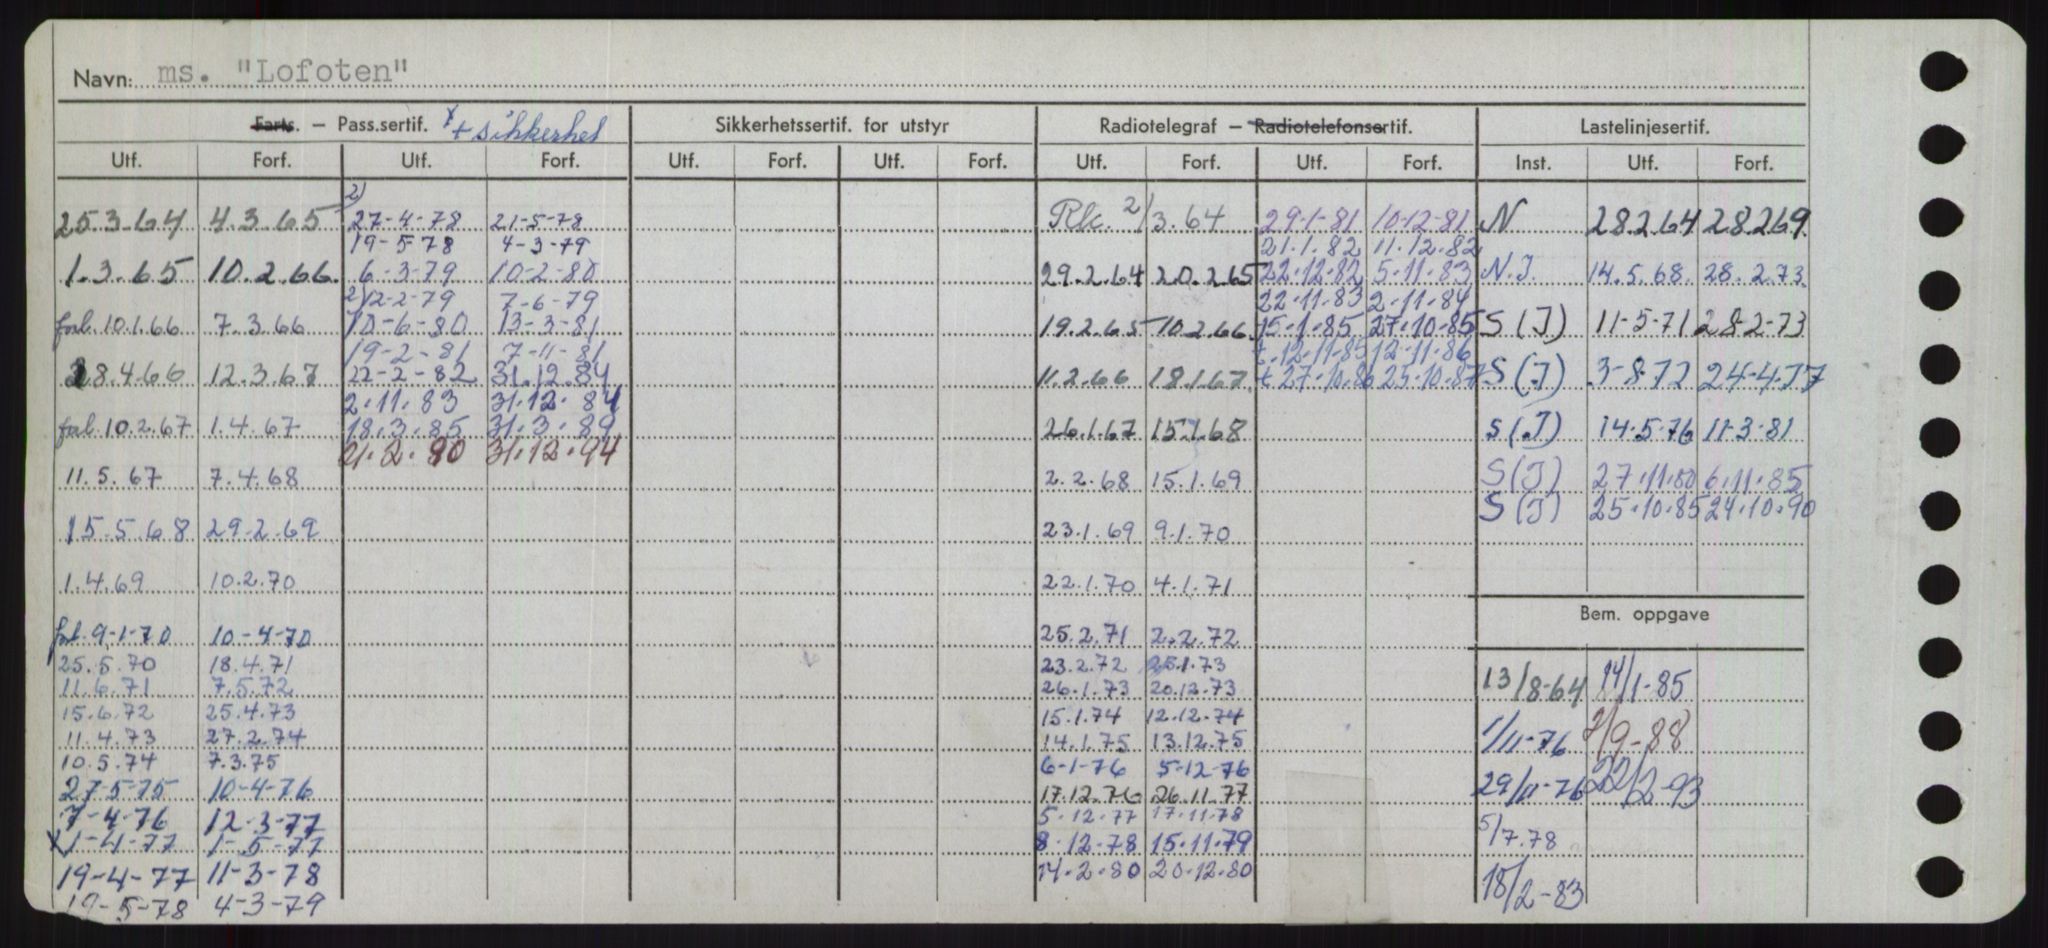 Navn: ms. "Lofoten"
Farts. – Pass.sertif. x + sikkerhet
Sikkerhetssertif. for utstyr
Radiotelegraf – Radiotelefonsertif.
Lastelinjesertif.
Utf. Forf. Utf. Forf. Utf. Forf. Utf. Forf. Utf. Forf. Utf. Forf. Inst. Utf. Forf.
25.3.64 4.3.65
1.3.65 10.2.66.
forl. 10.1.66 7.3.66
28.4.66 12.3.67
forl. 10.2.67 1.4.67
11.5.67 7.4.68
15.5.68 29.2.69
1.4.69 10.2.70
forl. 9-1-70 10-4-70
25.5.70 18.4.71
11.6.71 7.5.72
15.6.72 25.4.73
11.4.73 27.2.74
10.5.74 7.3.75
27-5-75 10-4-76
7-4-76 12-3-77
x 1-4-77 1-5-77
19-4-77 11-3-78
19-5-78 4-3-79
2)
27-4-78 21-5-78
19-5-78 4-3-79
6-3-79 10-2-80
2) 12-2-79 7-6-79
10-6-80 13-3-81
19-2-81 7-11-81
22-2-82 31.12.84
2.11.83 31.12.84
18.3.85 31.3.89
21.2.90 31.12.94
Rlc. 2/3.64
29.2.64 20.2.65
19.2.65 10.2.66
11.2.66 18.1.67
26.1.67 15.1.68
2.2.68 15.1.69
23.1.69 9.1.70
22.1.70 4.1.71
25.2.71 2.2.72
23.2.72 25.1.73
26.1.73 20.12.73
15.1.74 12.12.74
14.1.75 13.12.75
6-1-76 5-12-76
17.12.76 26.11.77
5.12.77 17.11.78
8.12.78 15.11.79
14.2.80 20.12.80
29-1-81 10-12-81
21.1.82 11.12.82
22.12.82 5.11.83
22.11.83 2.11.84
15.1.85 27.10.85
t. 12.11.85 12.11.86
t 27.10.86 25.10.87
N 28.2.64 28.2.69
N.I. 14.5.68. 28.2.73
S (I) 11-5-71 28-2-73
S (I) 3-8-72 24-4-77
S (I) 14-5-76 11-3-81
S (I) 27.11.80 6.11.85
S (I) 25.10.85 24.10.90
Bem. oppgave
13/8-64 14/1-85
1/11-76 2/9-88
29/11-76 22/2-93
5/7.78
18/2-83